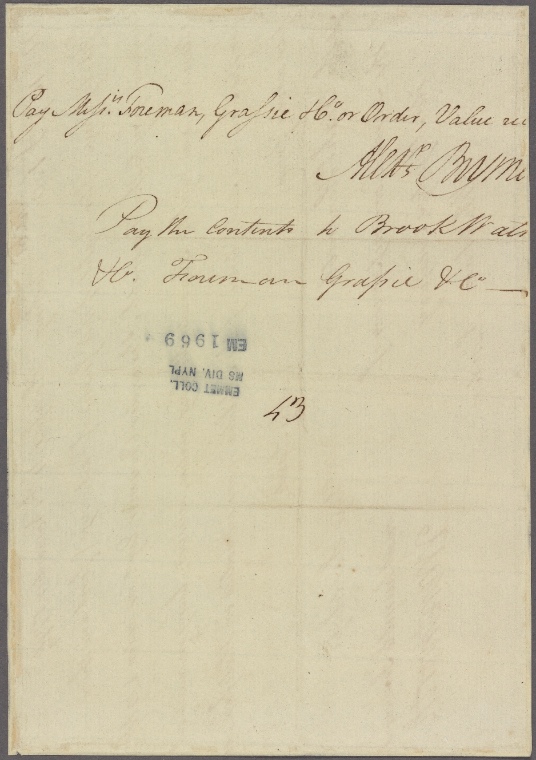 Pay Messrs. Foreman, Grassie & Co. or Order, Value rec
Alexr. Byrne
Pay the Contents to Brook Wats
& Co. Foreman Grassie & Co
EM 1969
EMMET COLL.
MS DIV. NYPL